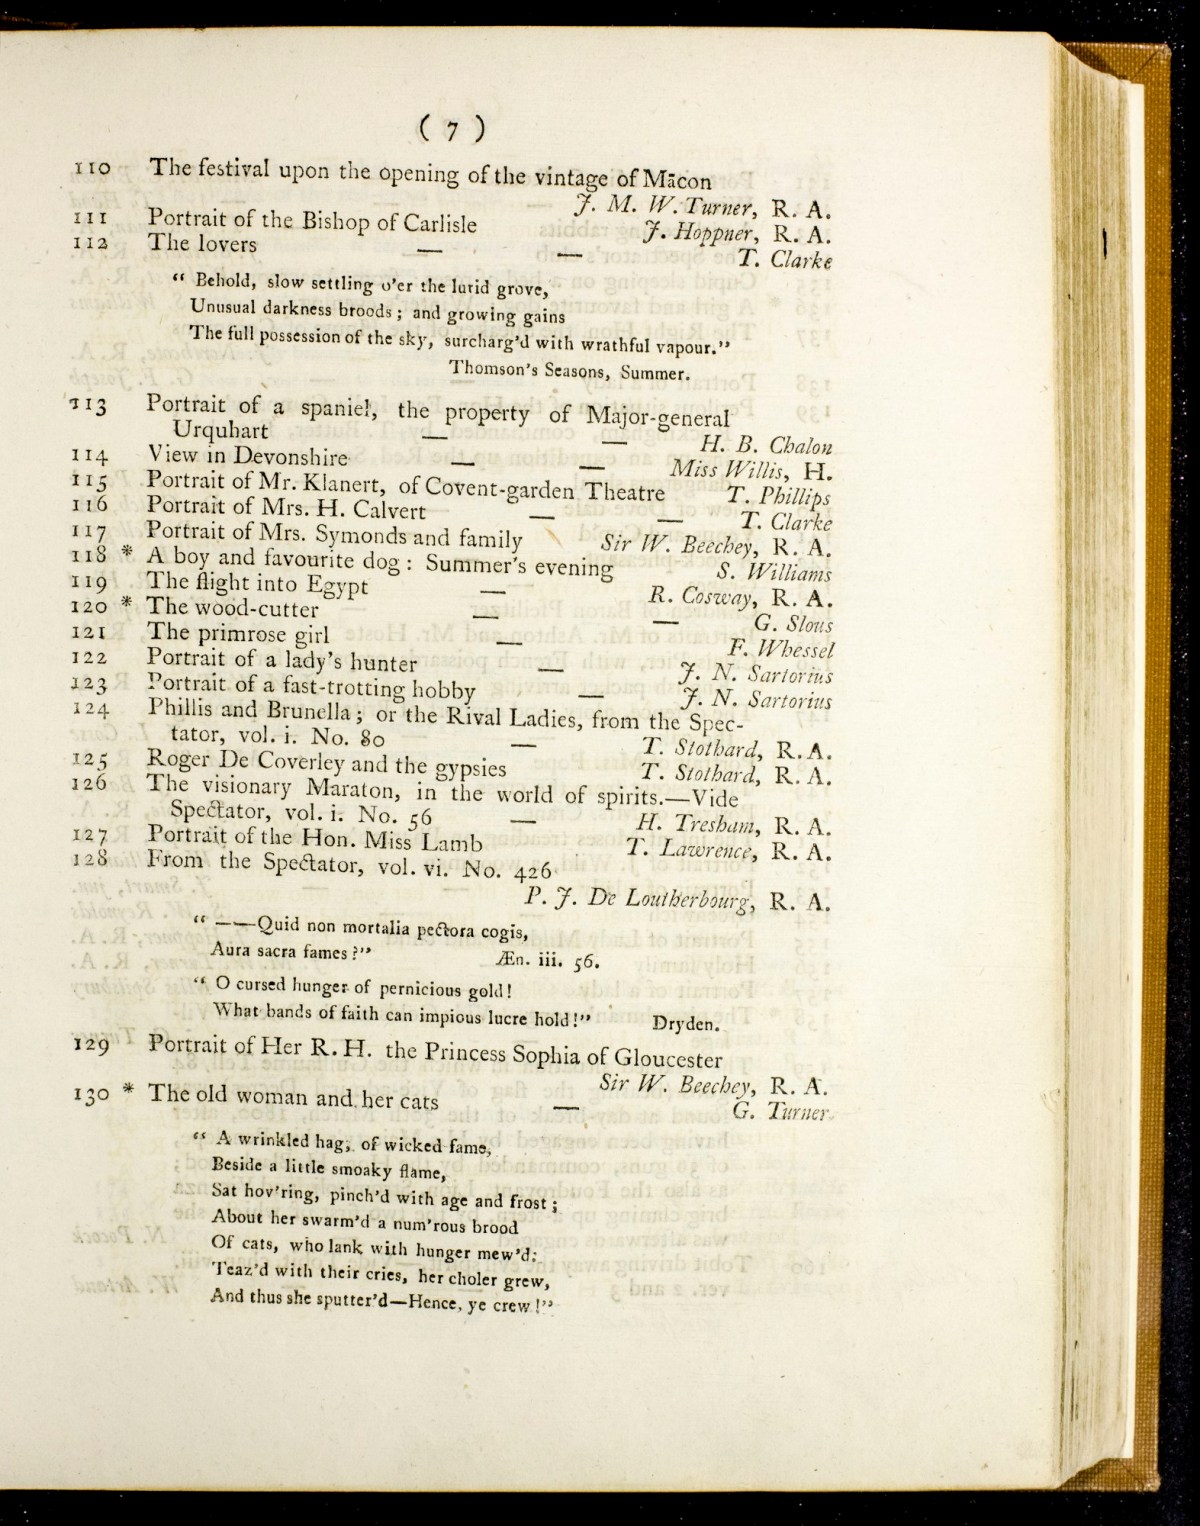 ( 7 )
110 The festival upon the opening of the vintage of Mācon
J. M. W. Turner, R. A.
111 Portrait of the Bishop of Carlisle J. Hoppner, R. A.
112 The lovers — — T. Clarke
“ Behold, slow settling o'er the lurid grove,
Unusual darkness broods ; and growing gains
The full possession of the sky, surcharg'd with wrathful vapour.”
Thomson's Seasons, Summer.
113 Portrait of a spaniel, the property of Major-general
Urquhart — — H. B. Chalon
114 View in Devonshire — — Miss Willis, H.
115 Portrait of Mr. Klanert, of Covent-garden Theatre T. Phillips
116 Portrait of Mrs. H. Calvert — — T. Clarke
117 Portrait of Mrs. Symonds and family Sir W. Beechey, R. A.
118 * A boy and favourite dog : Summer's evening S. Williams
119 The flight into Egypt — R. Cosway, R. A.
120 * The wood-cutter — — G. Slous
121 The primrose girl — F. Whessel
122 Portrait of a lady's hunter — J. N. Sartorius
123 Portrait of a fast-trotting hobby — J. N. Sartorius
124 Phillis and Brunella ; or the Rival Ladies, from the Spec-
tator, vol. i. No. 80 — T. Stothard, R. A.
125 Roger De Coverley and the gypsies T. Stothard, R. A.
126 The visionary Maraton, in the world of spirits.—Vide
Spectator, vol. i. No. 56 — H. Tresham, R. A.
127 Portrait of the Hon. Miss Lamb T. Lawrence, R. A.
128 From the Spectator, vol. vi. No. 426
P. J. De Loutherbourg, R. A.
“ ——Quid non mortalia pectora cogis,
Aura sacra fames ?” Æn. iii. 56.
“ O cursed hunger of pernicious gold !
What bands of faith can impious lucre hold !” Dryden.
129 Portrait of Her R. H. the Princess Sophia of Gloucester
Sir W. Beechey, R. A.
130 * The old woman and her cats — G. Turner
“ A wrinkled hag, of wicked fame,
Beside a little smoaky flame,
Sat hov'ring, pinch'd with age and frost ;
About her swarm'd a num'rous brood
Of cats, who lank with hunger mew'd:
Teaz'd with their cries, her choler grew,
And thus she sputter'd—Hence, ye crew !”